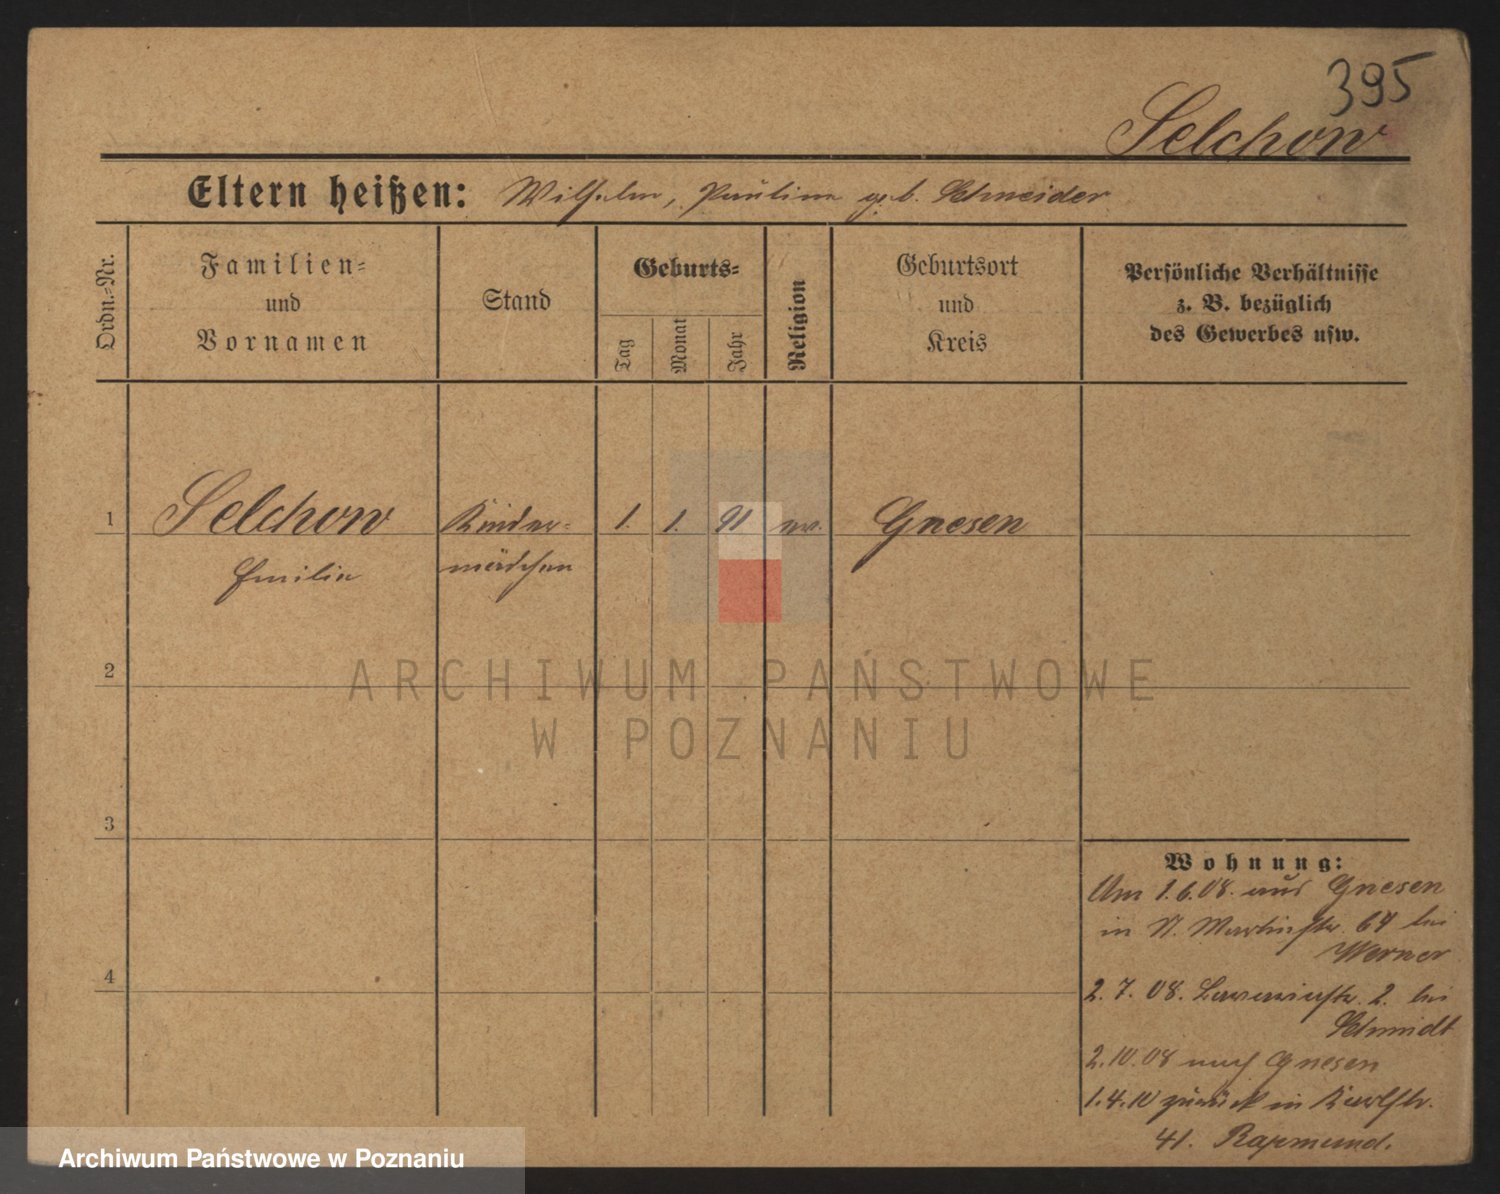 395
Selchow
Eltern heißen: Wilhelm, Pauline geb. Schneider
Ordn.-Nr.
Familien-
und
Vornamen
Stand
Geburts-
Tag
Monat
Jahr
Religion
Geburtsort
und
Kreis
Persönliche Verhältnisse
z. B. bezüglich
des Gewerbes usw.
1 Selchow Kinder- 1. 1. 91 ev. Gnesen
Emilie mädchen
2
ARCHIWUM PAŃSTWOWE
W POZNANIU
3
Wohnung:
Am 1.6.08. aus Gnesen
in St. Martinstr. 64 bei
Werner
4
2.7.08. 2. bei
Schmidt
2.10.08 nach Gnesen
1.4.10 zurück in Karlstr.
41. Rapmund.
Archiwum Państwowe w Poznaniu